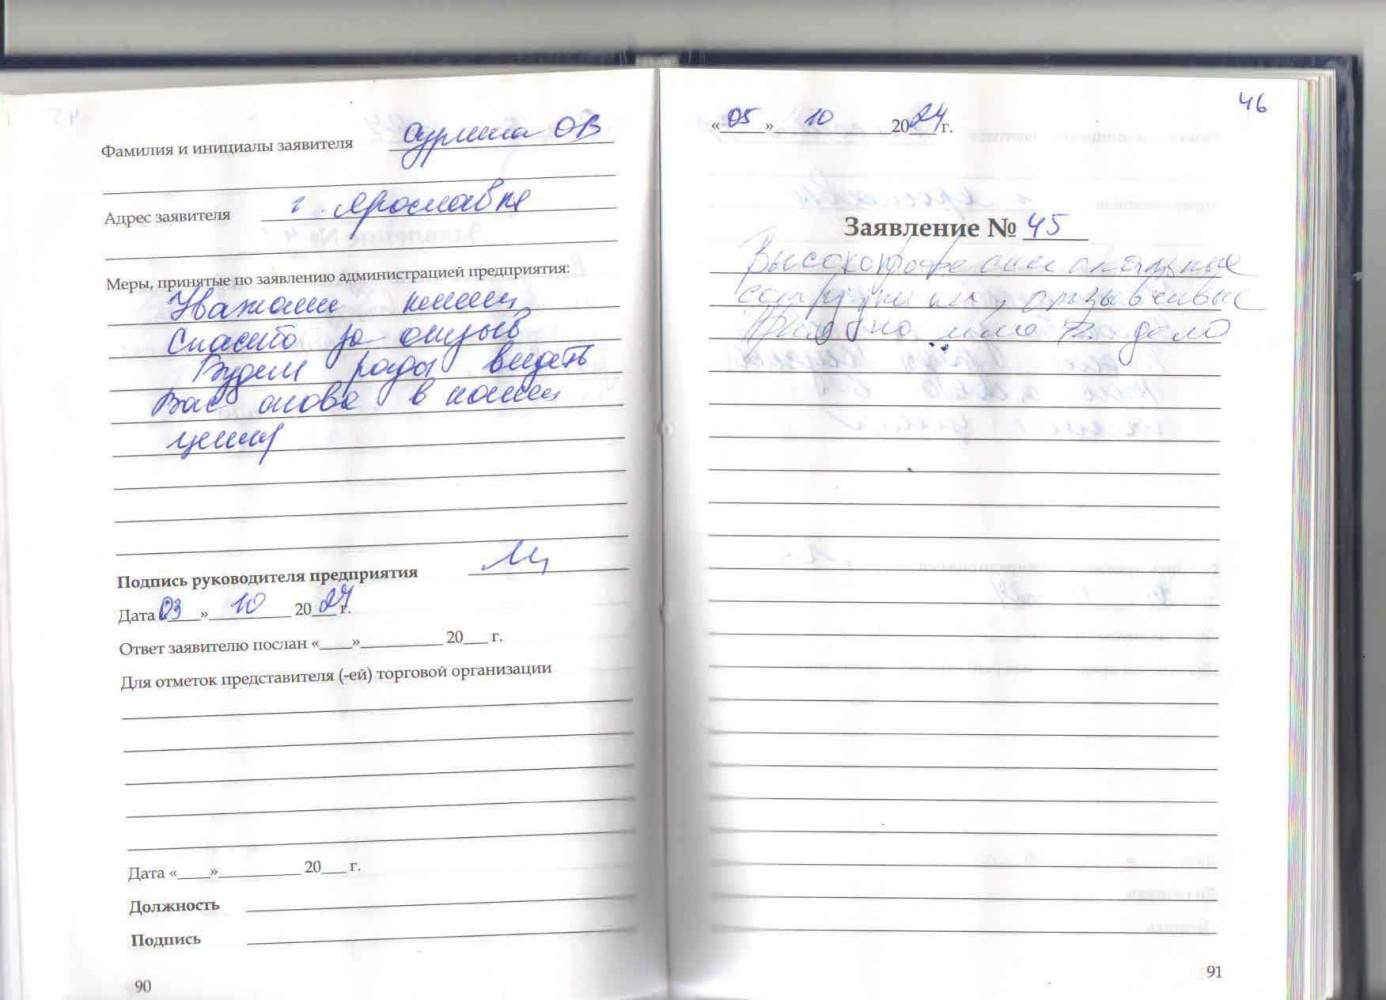 Фамилия и инициалы заявителя ОВ
Адрес заявителя г. Ярославль
Меры, принятые по заявлению администрацией предприятия:
Спасибо за отзыв
Будем рады видеть
Вас снова в нашем
центре
Подпись руководителя предприятия
Дата 03 » 10 2024 г.
Ответ заявителю послан «___»__________ 20___ г.
Для отметок представителя (-ей) торговой организации
Дата «____»__________ 20___ г.
Должность
Подпись
90
46
« 05 » 10 2024 г.
Заявление № 45
Высокопрофессиональные
сотрудники, отзывчивые
Приятно иметь дело
91